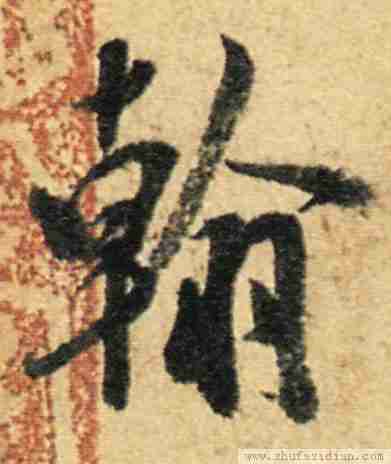 翰
www.zhufazidian.com